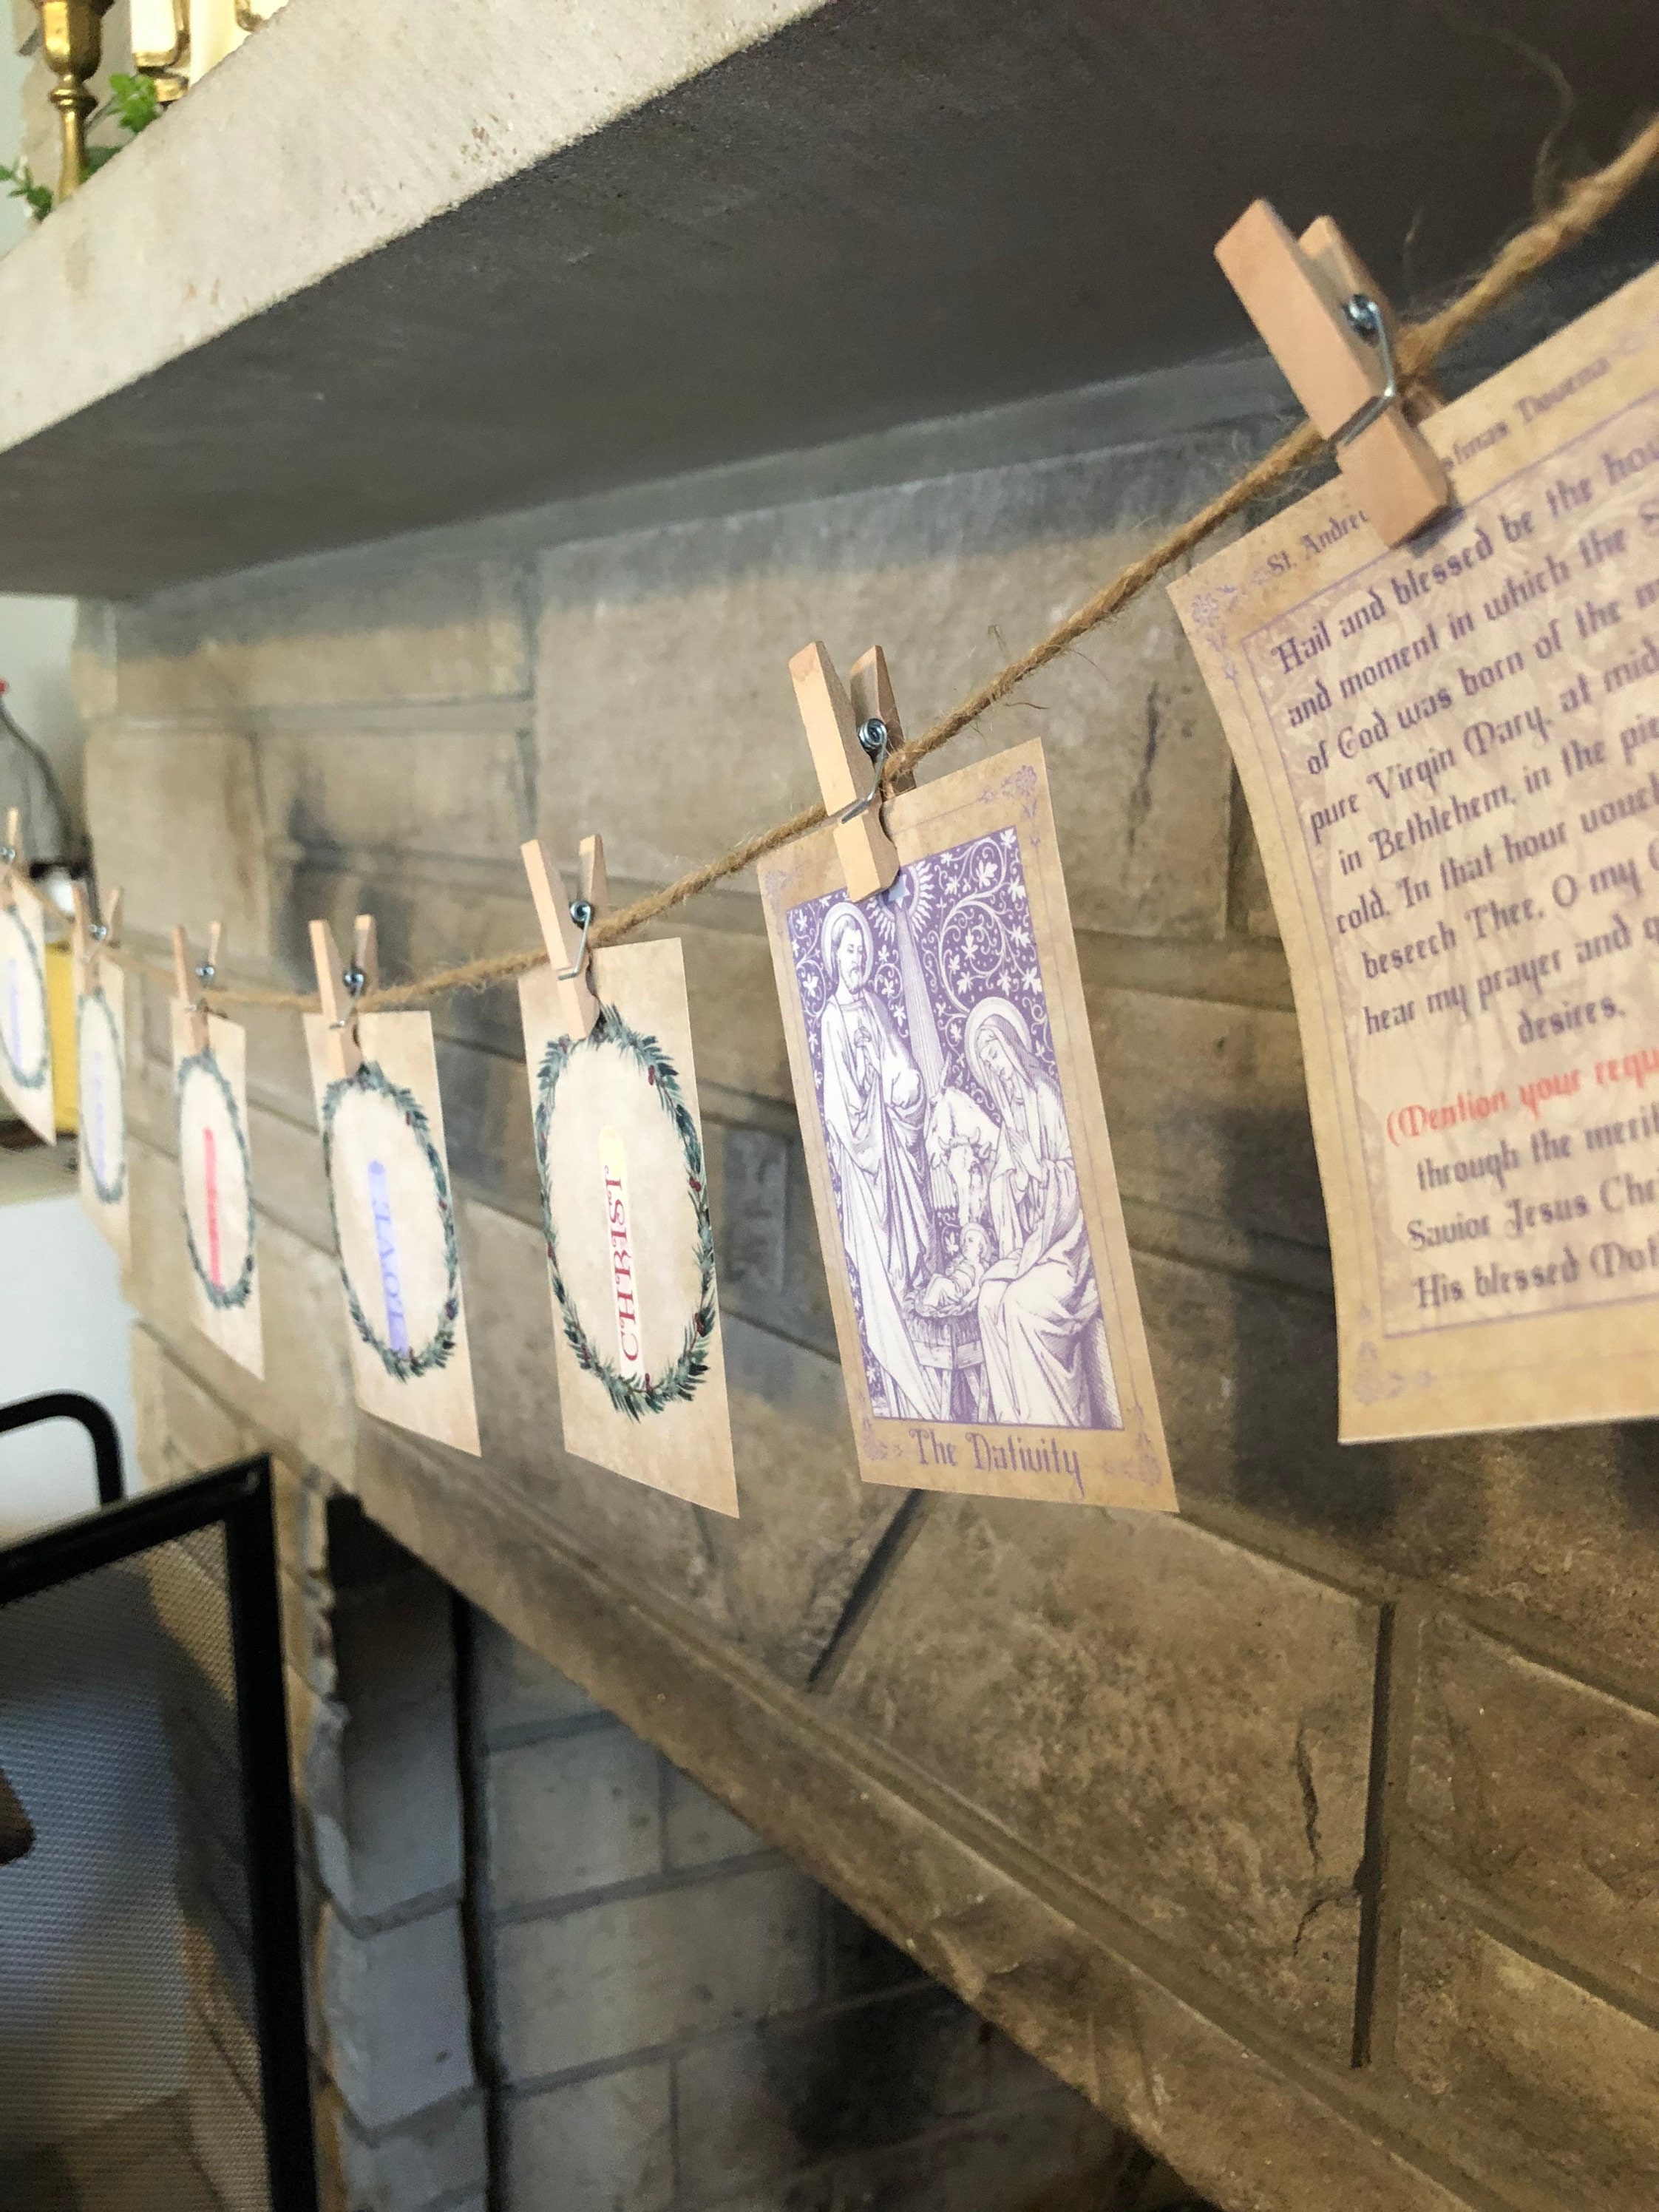 St. Andrew
Hail and blessed be the hou
and moment in which the S
of God was born of the m
pure Virgin Mary, at mid
in Bethlehem, in the pie
cold. In that hour vouch
beseech Thee, O my G
hear my prayer and g
desires,
(Mention your requ
through the merit
Savior Jesus Chr
His blessed Mot
The Nativity
CHRIST